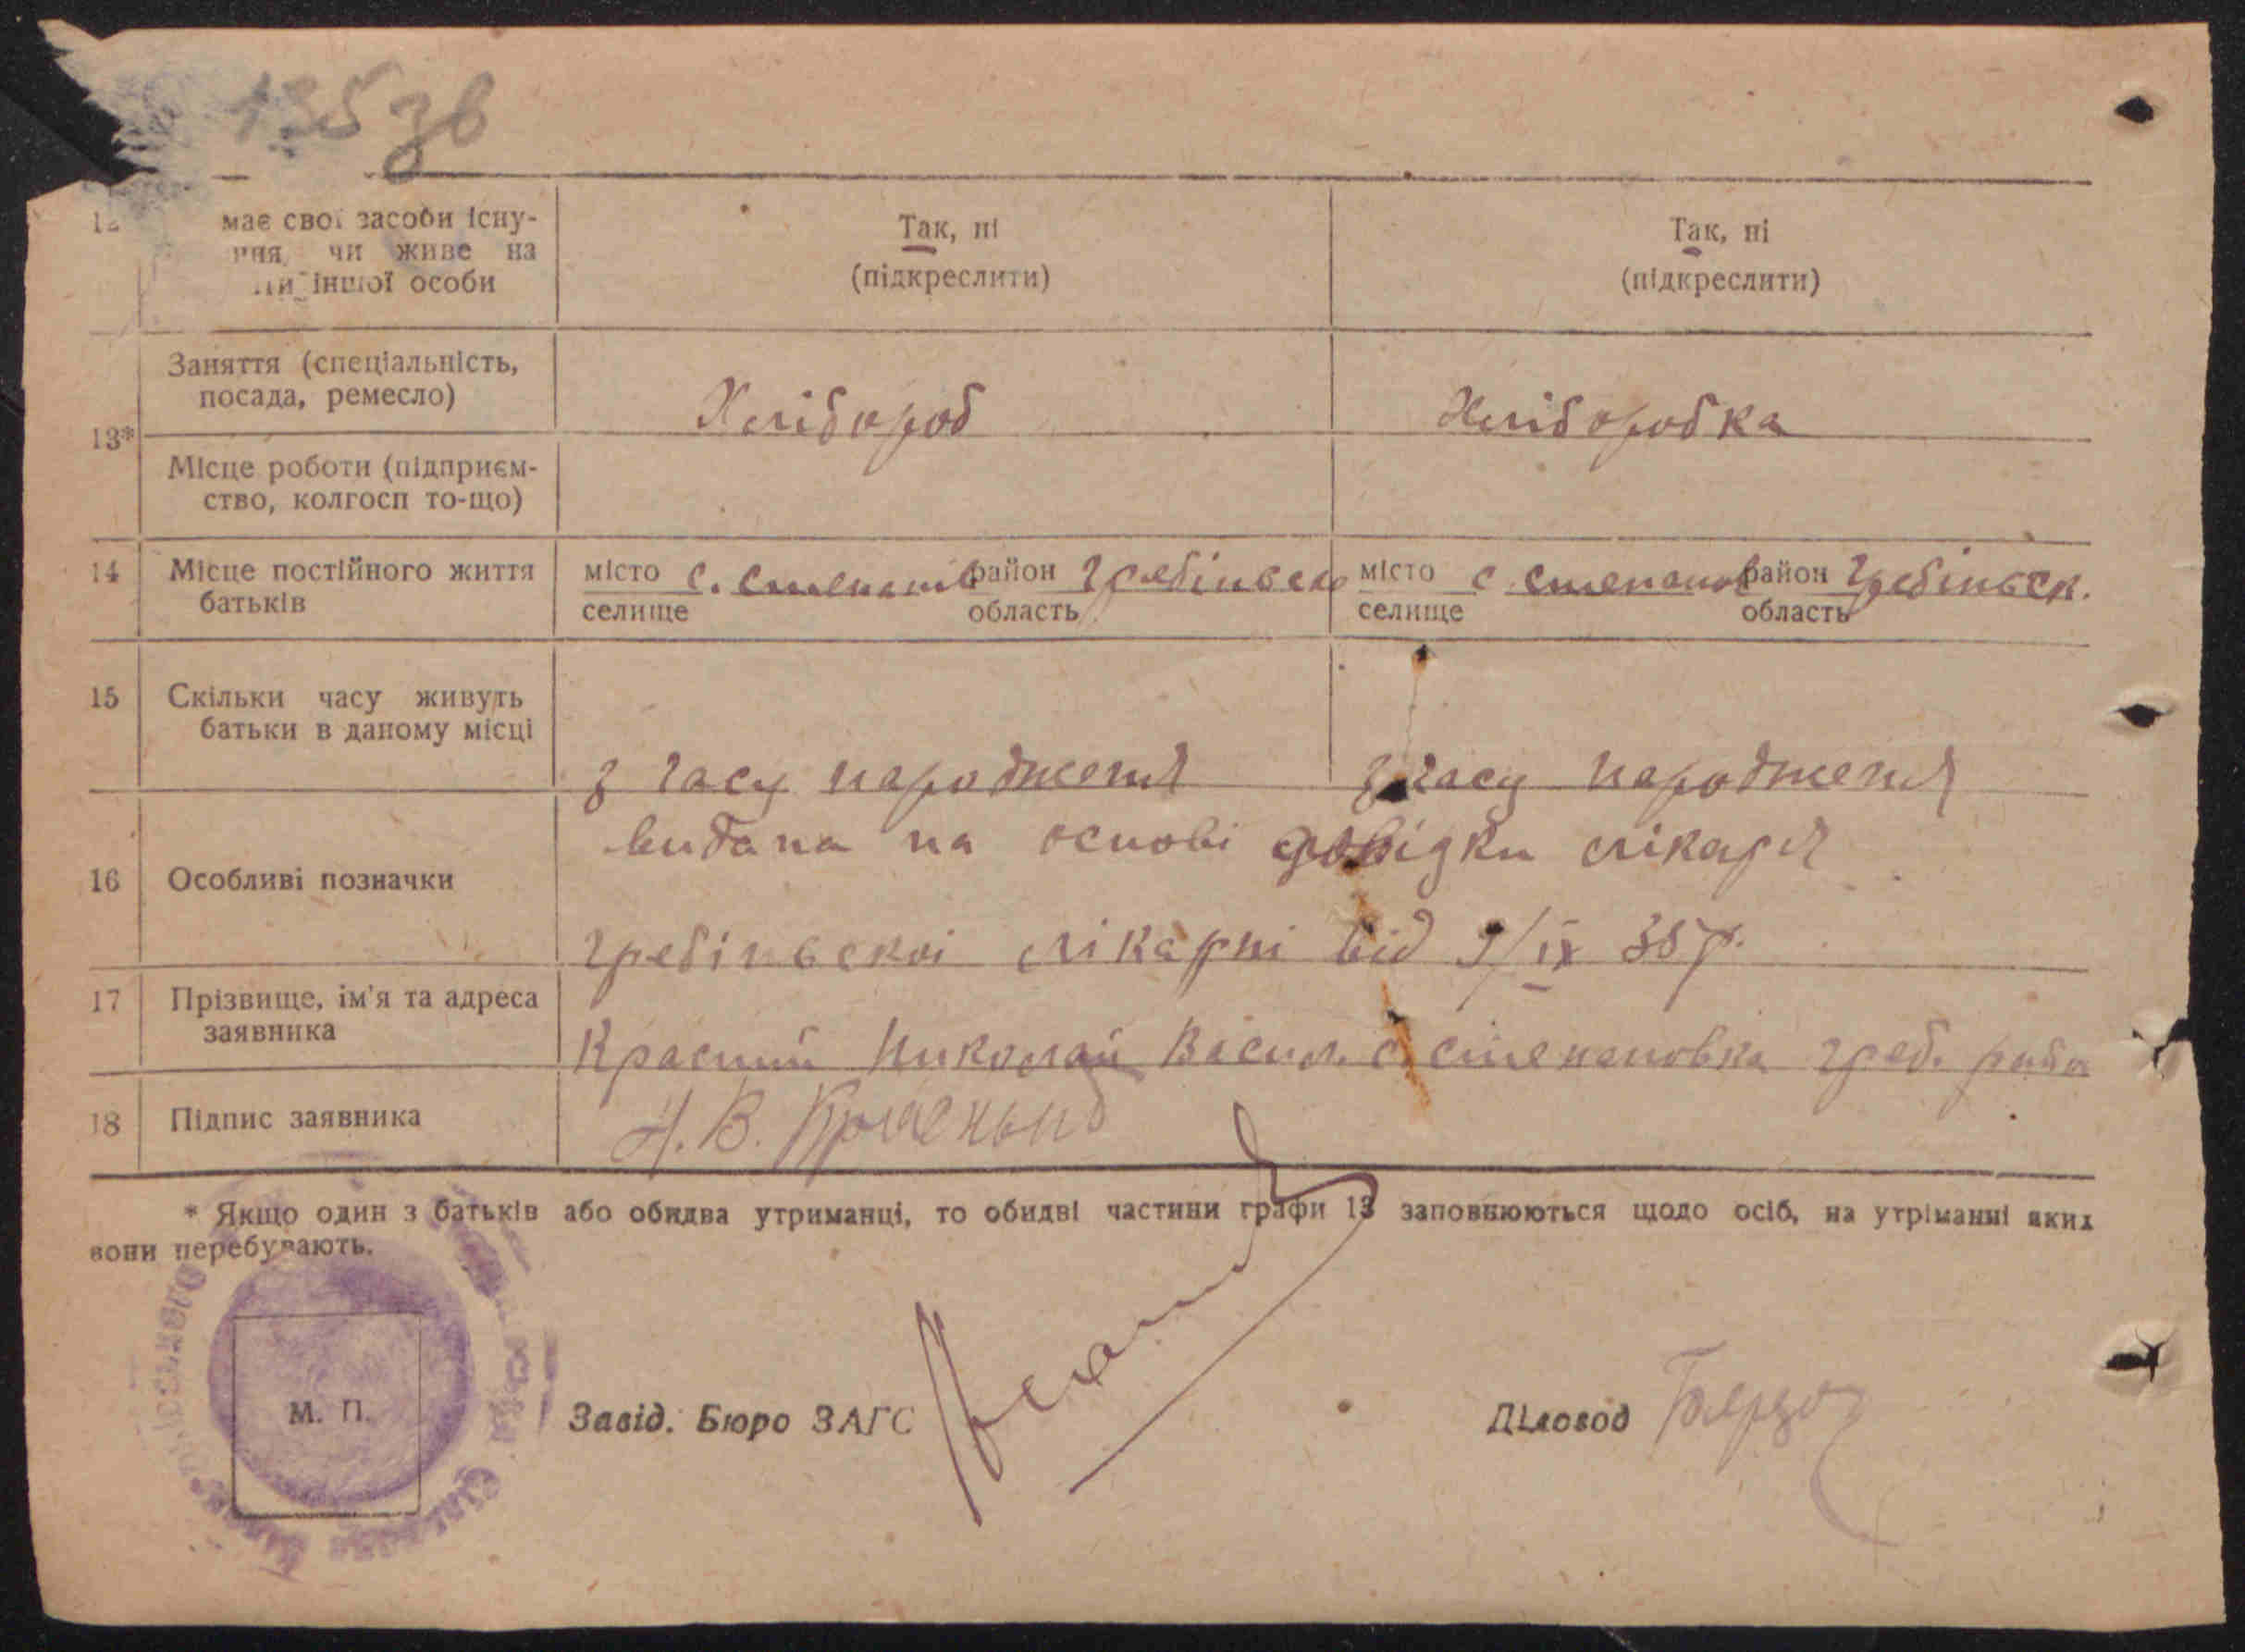 135 зв
12 має свої засоби існу- Так, ні Так, ні
ння, чи живе на (підкреслити) (підкреслити)
іншої особи
13* Заняття (спеціальність, Хлібороб Хліборобка
посада, ремесло)
Місце роботи (підприєм-
ство, колгосп то-що)
14 Місце постійного життя місто с. степанів район Гребіньск місто с степанов район Гребіньск.
батьків селище область селище область
15 Скільки часу живуть
батьки в даному місці
з часу народження з часу народження
16 Особливі позначки видана на основі довідки лікаря
гребіньскоі лікарні від 9/ІХ 35 р.
17 Прізвище, ім'я та адреса
заявника
Красний Николай Васил. с. степановка греб. райо
18 Підпис заявника Н. В. Красный
* Якщо один з батьків або обидва утриманці, то обидві частини графи 13 заповнюються щодо осіб, на утріманні яких
вони перебувають.
М. П. Завід. Бюро ЗАГС Діловод